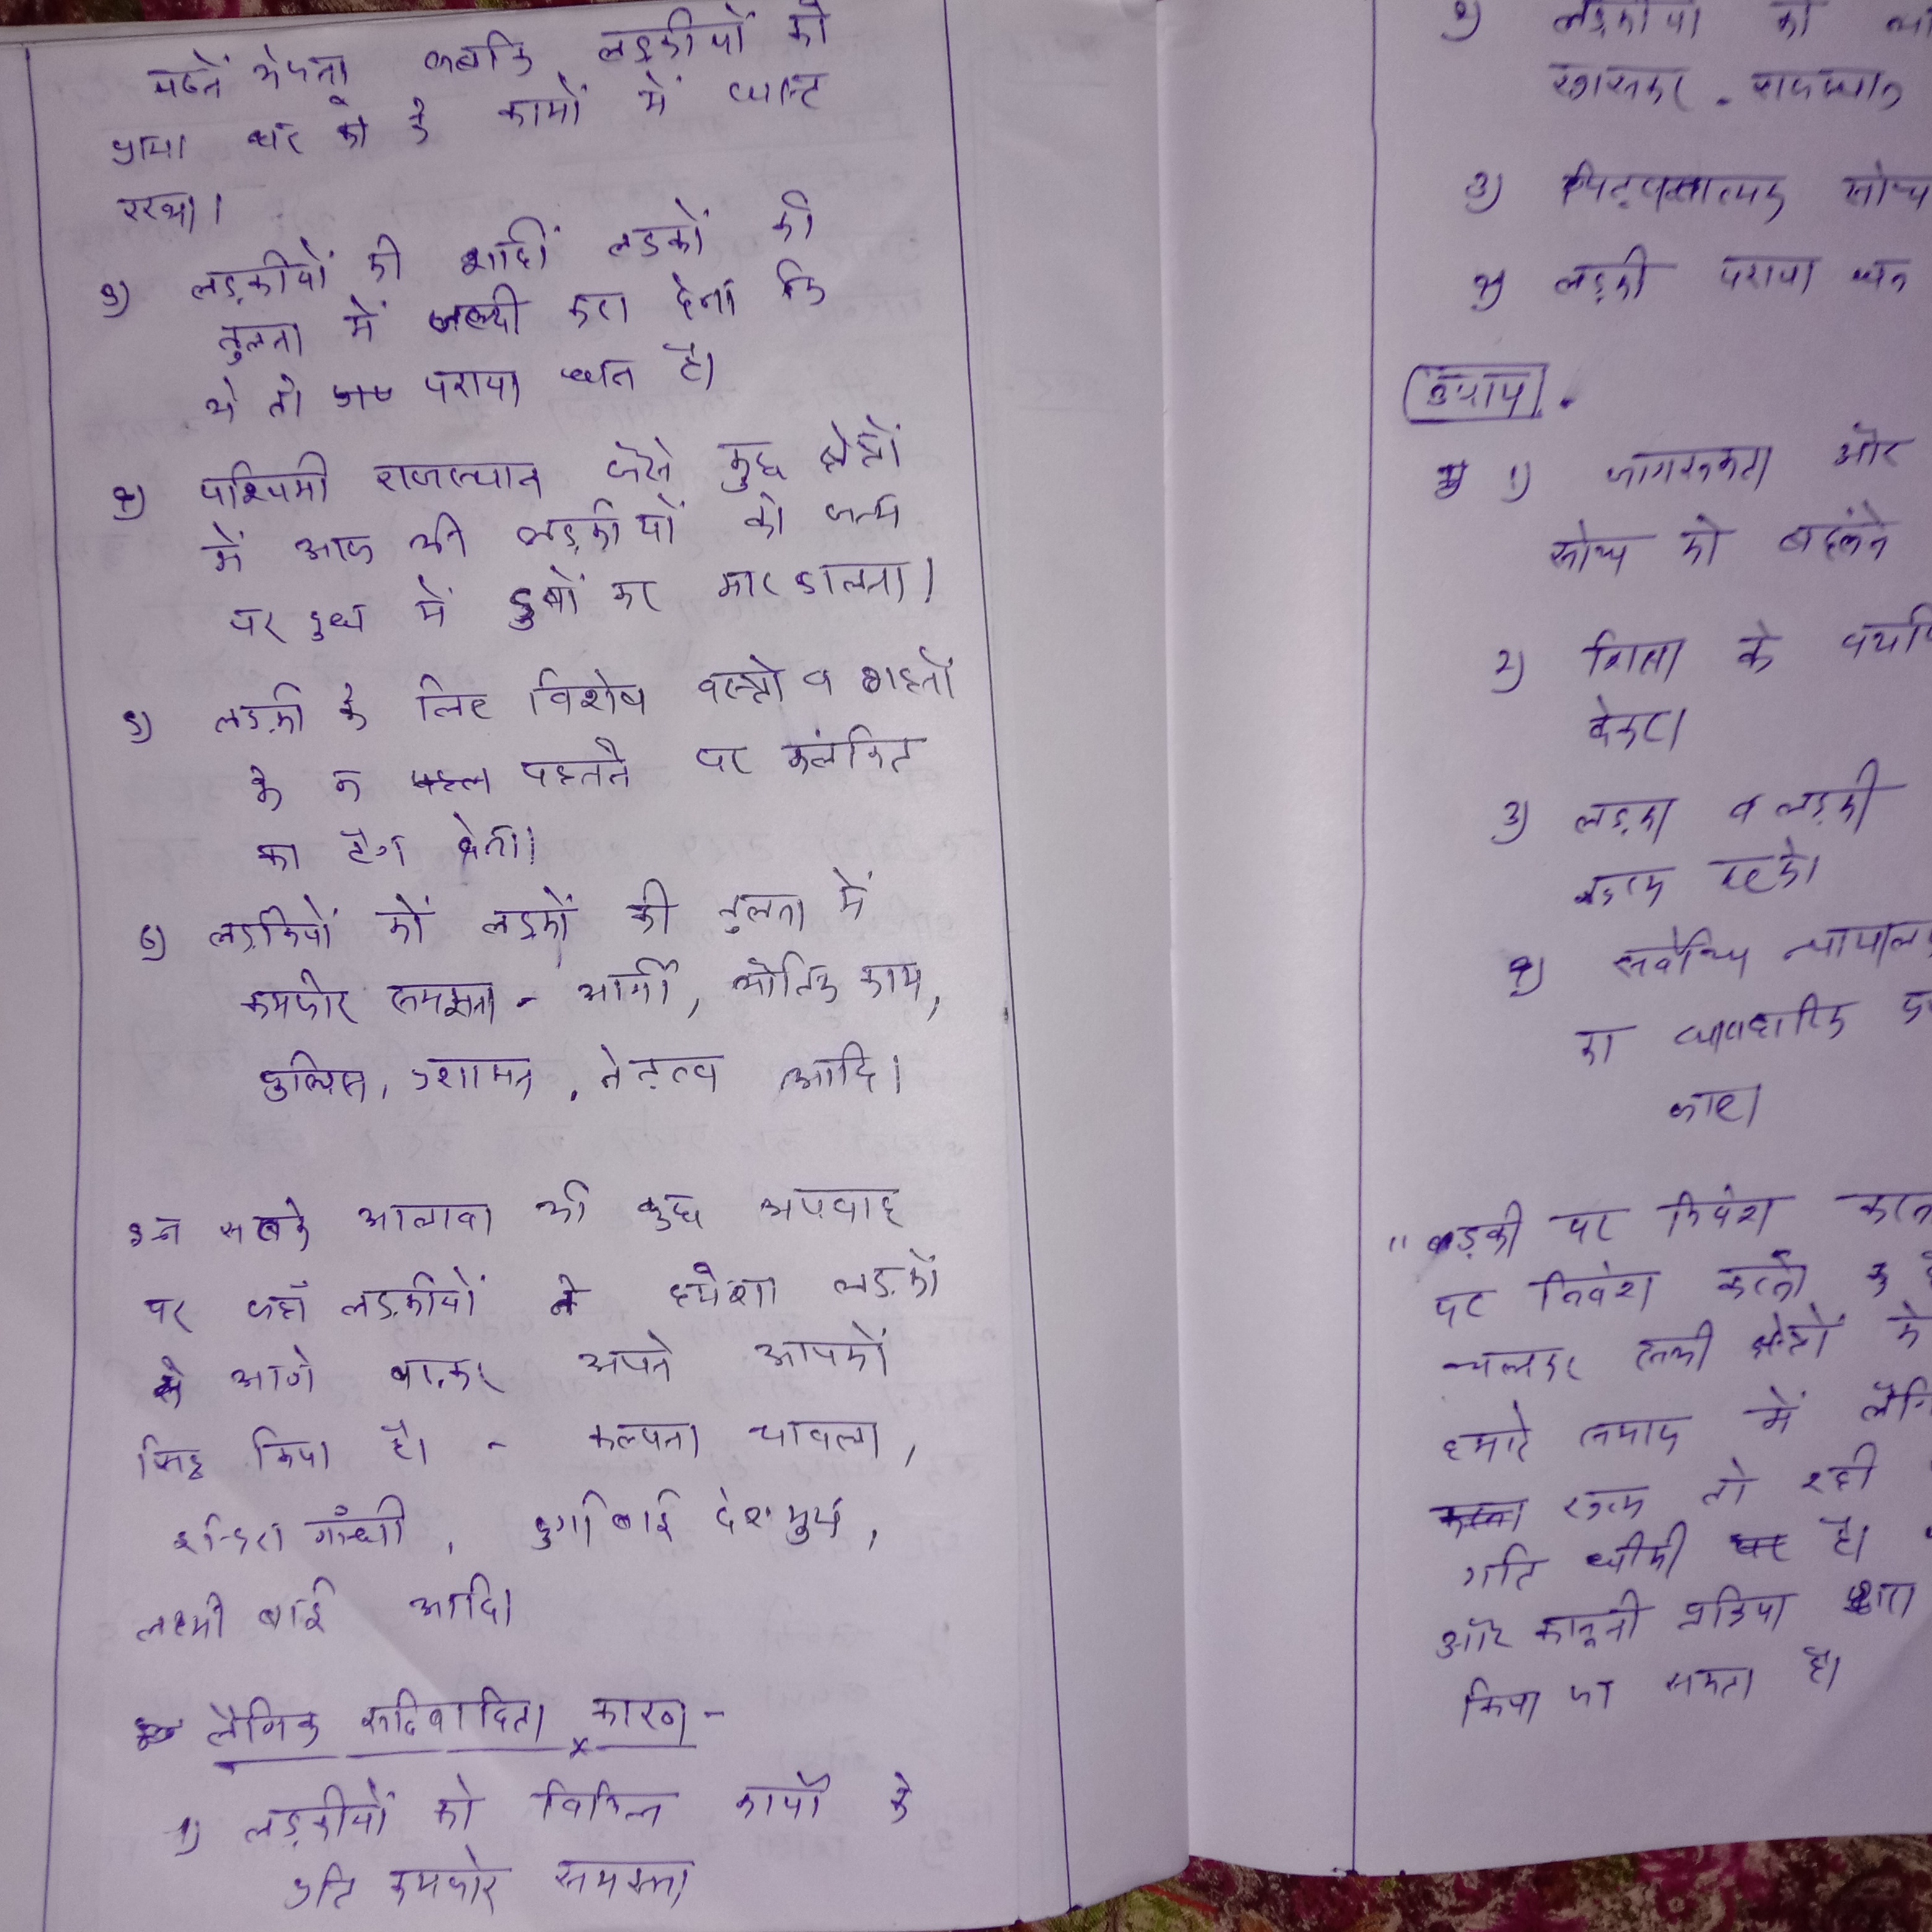 पढ़ने भेजना जबकि लड़कीयों को
भामा घर को के कामों में व्यस्ट
रखा।
3) लड़कीयों की शादीं लडकों की
तुलना में जल्दी करा देना कि
ये तो पराया धन है।
4) पश्चिमी राजस्थान जैसे कुछ क्षेत्रों
में आज भी लड़कीयों को जन्म
पर दुध में डुबों कर मार डालना।
5) लड़की के लिए विशेष वस्त्रो व गहनों
के न पहनने पर कलंकित
का टैग देना।
6) लड़कियों कों लड़कों की तुलना में
कमजोर समझना - आर्मी, भौतिक काम,
पुलिस, प्रशासन, नेतृत्व आदि।
इन सबके आलावा भी कुछ अपवाद
पर जहाँ लड़कीयों ने हमेशा लड़कों
से आगे बढ़कर अपने आपकों
सिद्ध किया है। - कल्पना चावला,
इन्दिरा गाँधी, दुर्गाबाई देशमुख,
लक्ष्मी बाई आदि।
लैंगिक रूढिवादिता कारण -
1) लड़कीयों को विभिन्न कार्यों के
प्रति कमजोर समझना
2) लड़कीयों को
खासकर - राजस्थान
3) पितृसत्तात्मक सोच
4) लड़की पराया धन
उपाय
1) जागरूकता और
सोच को बदलने
2) शिक्षा के
देकर।
3) लड़का व लड़की
4) सर्वोच्च न्यायालय
का व्यावहारिक
" लड़की पर निवेश करना
पर निवेश करने
चलकर सभी क्षेत्रों के
हमारे समाज में
तो रही
गति धीमी है।
और कानूनी प्रक्रिया द्वारा
किया जा सकता है।